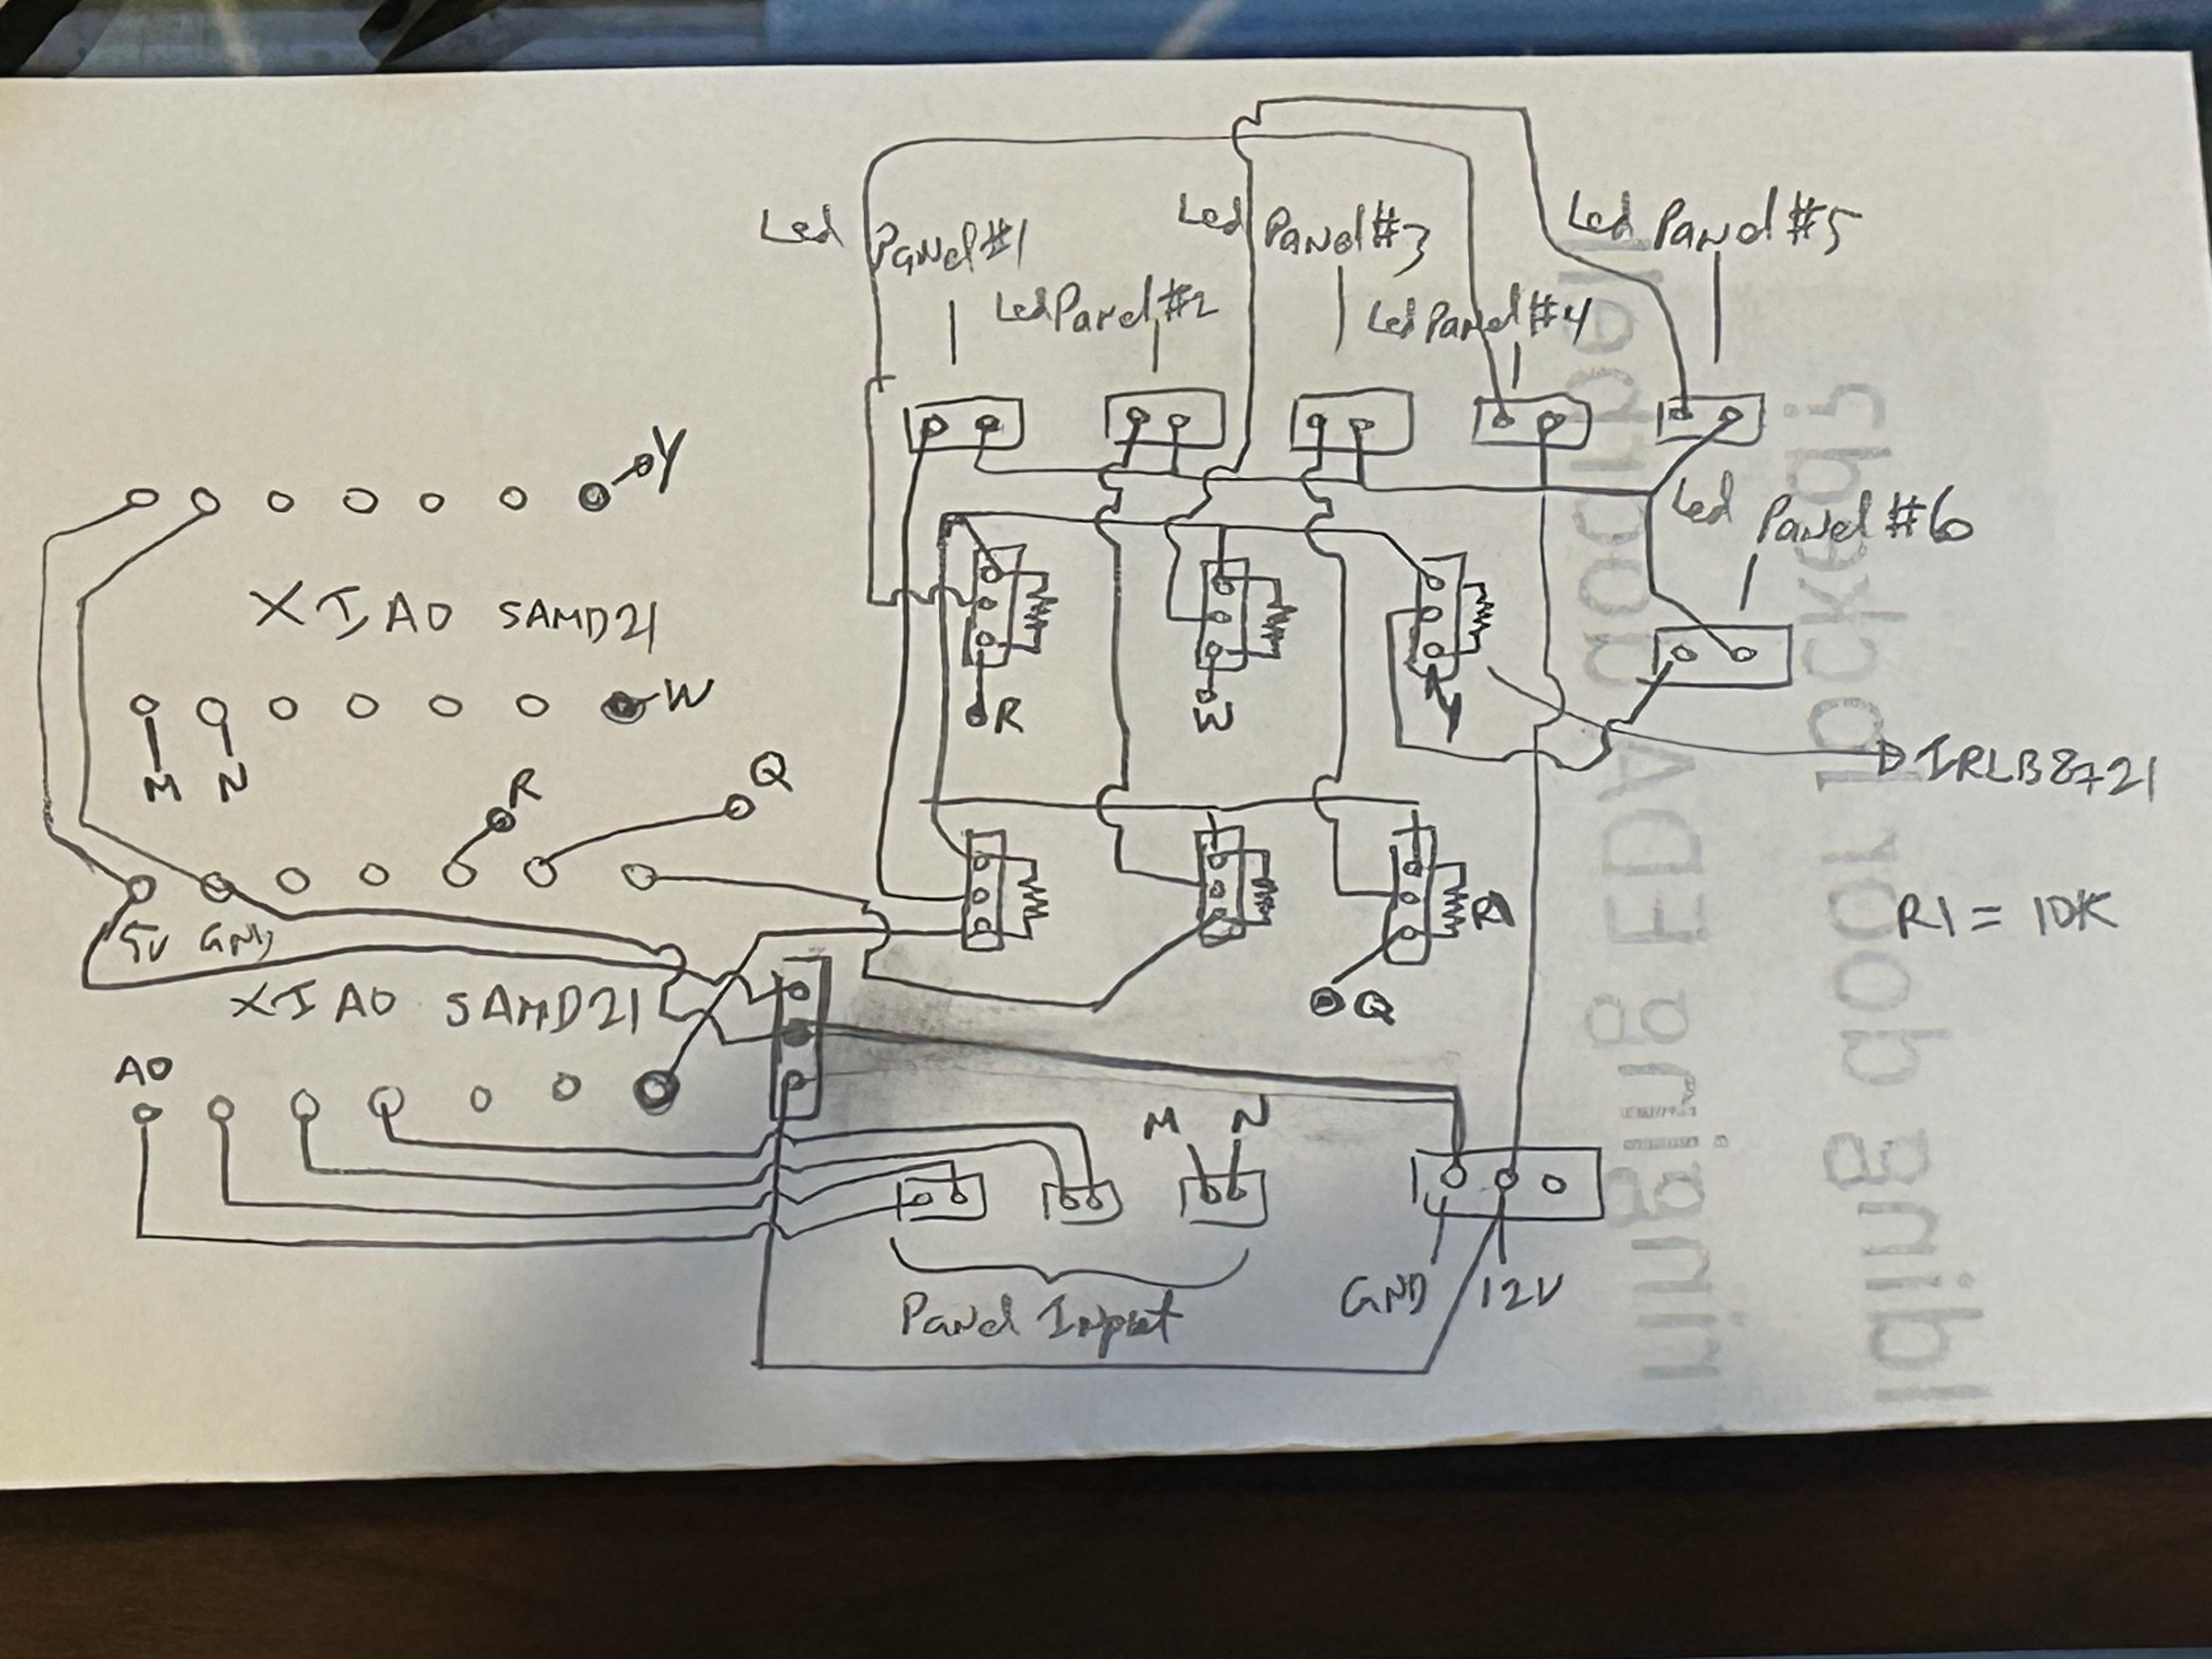 Led Panel #1
Led Panel #2
Led Panel #3
Led Panel #4
Led Panel #5
Led Panel #6
Y
XIAO SAMD21
W
M N
R
Q
R
W
Y
IRLB8721
5V GND
XIAO SAMD21
R1
R1 = 10K
Q
A0
M N
Panel Input
GND 12V